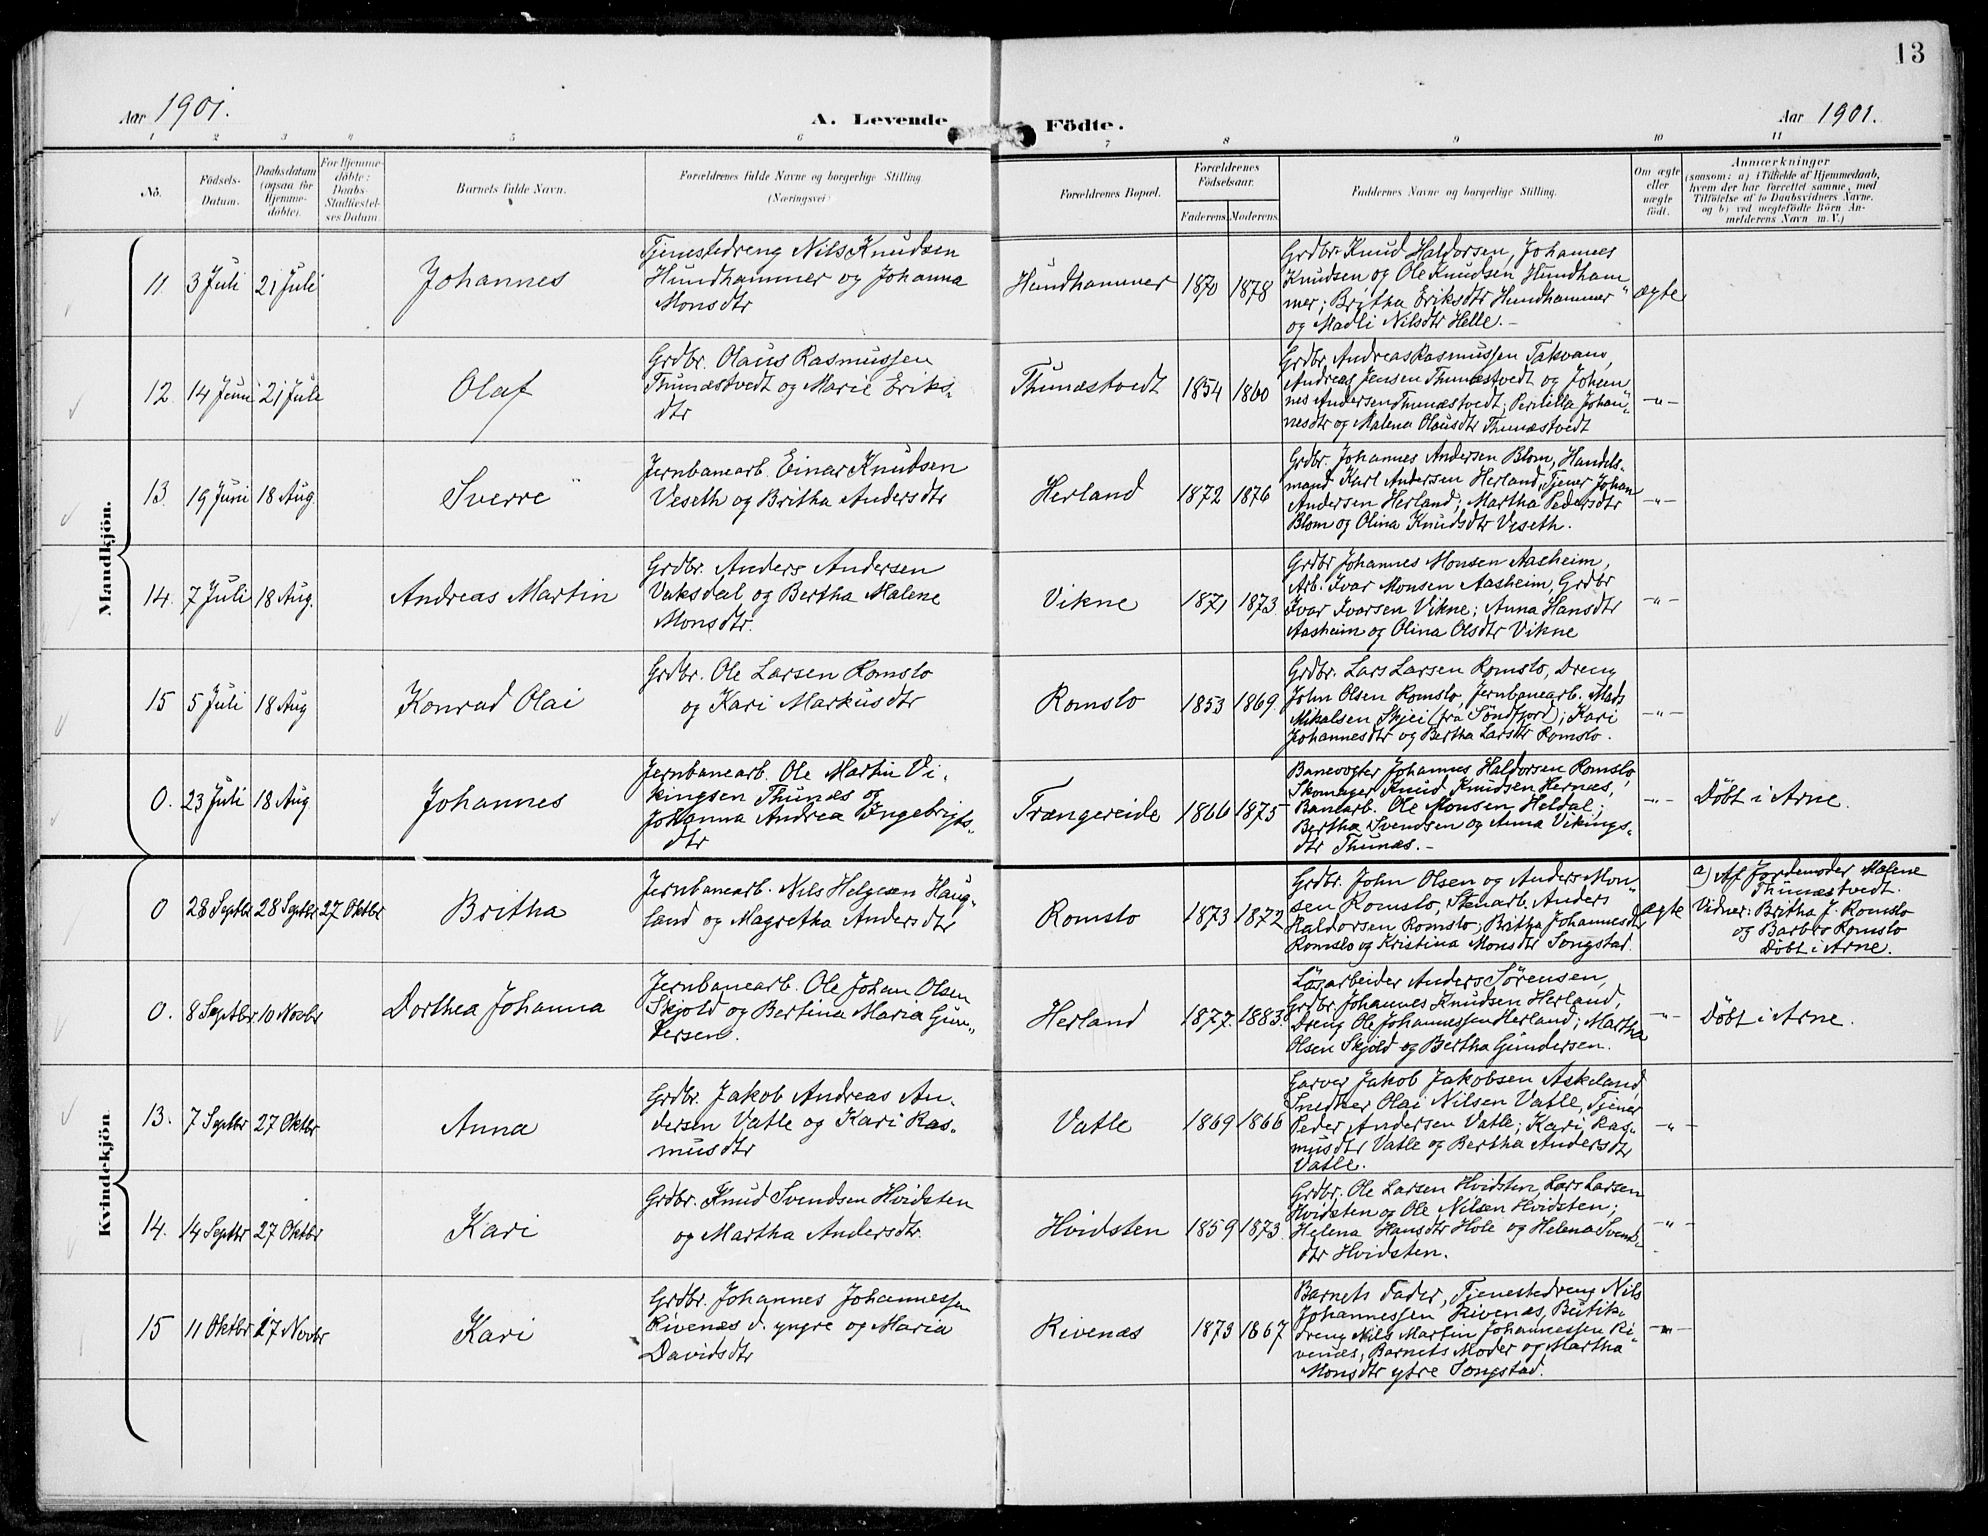 13
Aar 1901.
A. Levende
Födte.
Aar 1901.
1 2 3 4 5 6 7 8 9 10 11
No.
Födsels-
Datum.
Daabsdatum
(ogsaa for
Hjemme-
döbte).
For Hjemme-
döbte:
Daabs-
Stadfæstel-
ses Datum.
Barnets fulde Navn.
Forældrenes fulde Navne og borgerlige Stilling
(Næringsvei)
Forældrenes Bopæl.
Forældrenes
Födselsaar.
Faderens. Moderens.
Faddernes Navne og borgerlige Stilling.
Om ægte
eller
uægte
födt.
Anmærkninger
(saasom: a) i Tilfælde af Hjemmedaab,
hvem der har forrettet samme, med
Tilföielse af to Daabsvidners Navne,
og b) ved uægtefödte Börn An-
melderens Navn m. V.)
Mandkjön.
11 3 Juli 21 Juli
Johannes
Tjenestedreng Nils Knudsen
Hundhammer og Johanna
Monsdtr
Hundhammer 1870 1878
Grdbr. Knud Haldorsen, Johannes
Knudsen og Ole Knudsen Hundham
mer; Britha Eriksdtr Hundhammer
og Madli Nilsdtr Helle.-
ægte
12. 14 Juni 21 Juli
Olaf
Grdbr. Olaus Rasmussen
Thunæstvedt og Marie Eriks-
dtr
Thunæstvedt 1854 1860
Grdbr. Andreas Rasmussen Takvam,
Andreas Jensen Thunæstvedt og Johan
nes Andersen Thunæstvedt; Pernilla Johan-
nesdtr og Malena Olausdtr Thunæstvedt
-"-
13. 19 Juni 18 Aug.
Sverre
Jernbanearb. Einar Knudsen
Veseth og Britha Andersdtr
Herland 1872 1876
Grdbr. Johannes Andersen Blom, Handels-
mand Karl Andersen Herland, Tjener Johan
Andersen Herland; Martha Pedersdtr
Blom og Olina Knudsdtr Veseth.
-"-
14. 7 Juli 18 Aug.
Andreas Martin
Grdbr. Anders Andersen
Vaksdal og Bertha Malene
Monsdtr.
Vikne 1871 1873
Grdbr Johannes Monsen Aasheim,
Arb. Ivar Monsen Aasheim, Grdbr
Ivar Ivarsen Vikne; Anna Hansdtr
Aasheim og Olina Olsdtr Vikne
-"-
15 5 Juli 18 Aug
Konrad Olai
Grdbr. Ole Larsen Romslo
og Kari Markusdtr
Romslo 1853 1869.
Grdbr. Lars Larsen Romslo, Dreng
John Olsen Romslo, Jernbanearb. Mads
Mikalsen Skjei (fra Söndfjord); Kari
Johannesdtr og Bertha Larsdtr Romslo.
-"-
0. 23 Juli 18 Aug
Johannes
Jernbanearb. Ole Martin Vi-
kingsen Thunæs og
Johanna Andrea Ingebrigts-
dtr
Trængereide 1866 1875
Banevogter Johannes Haldorsen Romslo,
Skomager Knud Knudsen Hernæs,
Banearb. Ole Monsen Heldal;
Bertha Svendsen og Anna Vikings-
dtr Thunæs.-
-"-
Döbt i Arne.
Kvindekjön.
0 28 Septbr 28 Septbr 27 Oktbr
Britha
Jernbanearb. Nils Helgesen Haug-
land og Magretha Andersdtr
Romslo 1873 1872
Grdbr. John Olsen og Anders Mon-
sen Romslo, Stenarb. Anders
Haldorsen Romslo; Britha Johannesdtr
Romslo og Kristina Monsdtr Songstad.
ægte
a) Af Jordemoder Malene
Thunæstvedt.
Vidner: Britha J. Romslo
og Barbro Romslo
Döbt i Arne.
0. 8 Septbr 10 Novbr
Dorthea Johanna
Jernbanearb. Ole Johan Olsen
Skjold og Bertina Maria Gun-
dersen.
Herland 1877. 1883.
Lösarbeider Anders Sörensen,
Grdbr Johannes Knudsen Herland,
Dreng Ole Johannessen Herland; Martha
Olsen Skjold og Bertha Gundersen.
-"-
Döbt i Arne.
13. 7 Septbr 27 Oktbr
Anna
Grdbr. Jakob Andreas An-
dersen Vatle og Kari Ras-
musdtr
Vatle 1869 1866
Garver Jakob Jakobsen Askeland,
Snedker Olai Nilsen Vatle, Tjener
Peder Andersen Vatle; Kari Ras-
musdtr Vatle og Bertha Andersdtr
Vatle.
-"-
14. 14 Septbr 27 Oktbr
Kari
Grdbr. Knud Svendsen Hvidsten
og Martha Andersdtr.
Hvidsten 1859 1873.
Grdbr. Ole Larsen Hvidsten, Lars Larsen
Hvidsten og Ole Nilsen Hvidsten;
Helena Hansdtr Hole og Helena Svends-
dtr Hvidsten.
-"-
15 11 Oktbr 17 Novbr
Kari
Grdbr. Johannes Johannessen
Rivenæs d. yngre og Maria
Davidsdtr
Rivenæs 1873 1867
Barnets Fader, Tjenestedreng Nils
Johannessen Rivenæs, Butik-
dreng Nils Martin Johannessen Ri-
venæs, Barnets Moder og Martha
Monsdtr ytre Songstad.
-"-